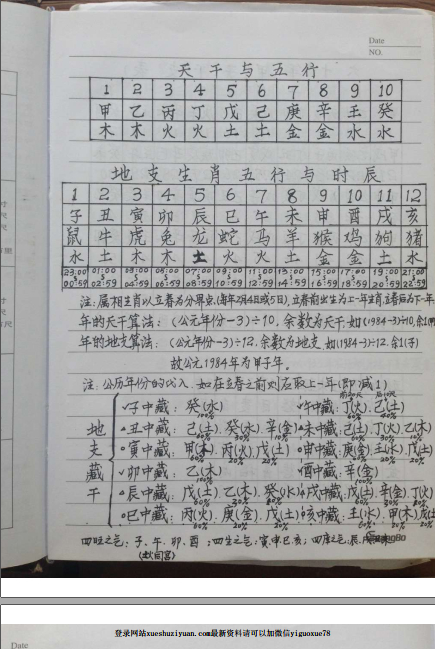 Date
NO.
天干与五行
1 2 3 4 5 6 7 8 9 10
甲 乙 丙 丁 戊 己 庚 辛 壬 癸
木 木 火 火 土 土 金 金 水 水
地支生肖五行与时辰
1 2 3 4 5 6 7 8 9 10 11 12
子 丑 寅 卯 辰 巳 午 未 申 酉 戌 亥
鼠 牛 虎 兔 龙 蛇 马 羊 猴 鸡 狗 猪
水 土 木 木 土 火 火 土 金 金 土 水
23:00 01:00 03:00 05:00 07:00 09:00 11:00 13:00 15:00 17:00 19:00 21:00
00:59 02:59 04:59 06:59 08:59 10:59 12:59 14:59 16:59 18:59 20:59 22:59
注:属相生肖以立春为分界点,(每年2月4日或5日),立春前出生为上一年生肖,立春后为下一年
年的天干算法:(公元年份-3)÷10,余数为天干;如(1984-3)÷10,余1(甲)
年的地支算法:(公元年份-3)÷12,余数为地支,如(1984-3)÷12.余1(子)
故公元1984年为甲子年。
注:公历年份的代入,如在立春之前则应取上一年(即减1)
地支藏干
子中藏:癸(水) 100%
午中藏:丁(火) 己(土)
丑中藏:己(土) 癸(水) 辛(金)
未中藏:己(土) 丁(火) 乙(木)
寅中藏:甲(木) 丙(火) 戊(土)
申中藏:庚(金) 壬(水) 戊(土)
卯中藏:乙(木) 100%
酉中藏:辛(金) 100%
辰中藏:戊(土) 乙(木) 癸(水)
戌中藏:戊(土) 辛(金) 丁(火)
巳中藏:丙(火) 庚(金) 戊(土)
亥中藏:壬(水) 甲(木)
四旺之气:子、午、卯、酉;四生之气:寅、申、巳、亥;四库之气:辰、
登录网站xueshuziyuan.com最新资料请可以加微信yiguoxue78
Date